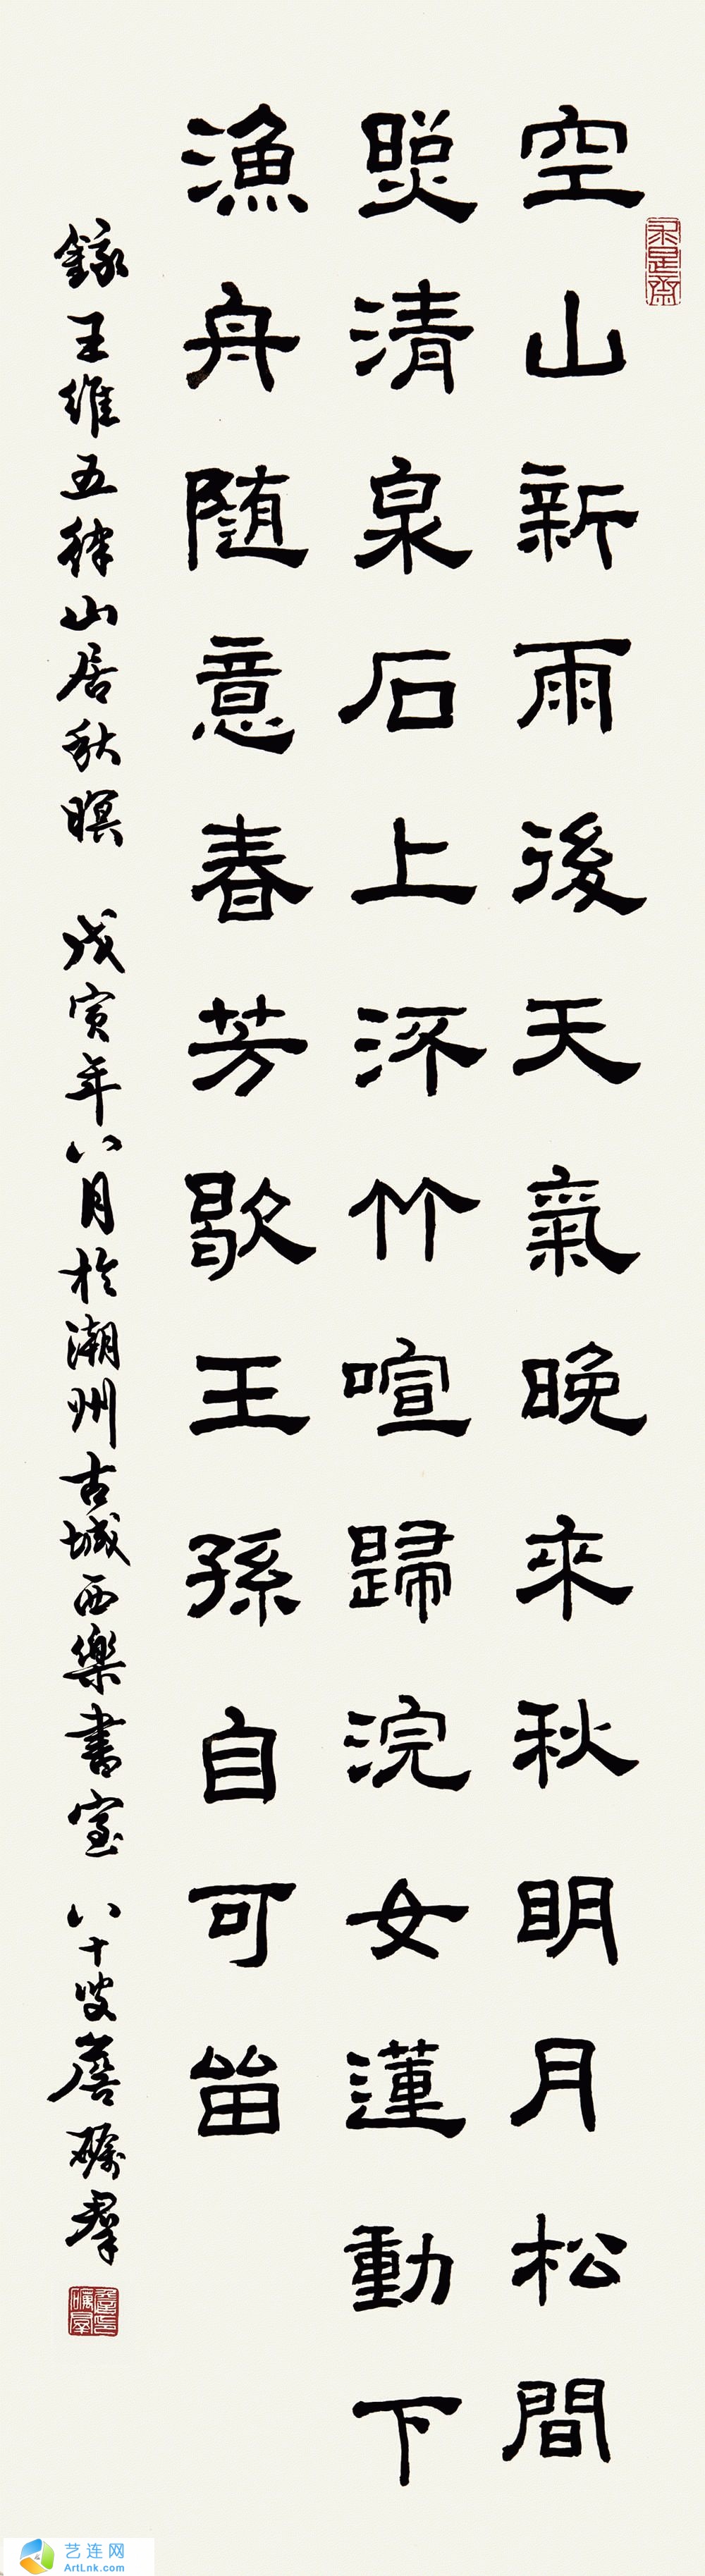 空山新雨後天氣晚來秋明月松間
照清泉石上流竹喧歸浣女蓮動下
漁舟隨意春芳歇王孫自可留
錄王維五律山居秋暝 戊寅年八月於潮州古城西樂書室 八十叟詹礪群
求是齋
艺连网
ArtLnk.com